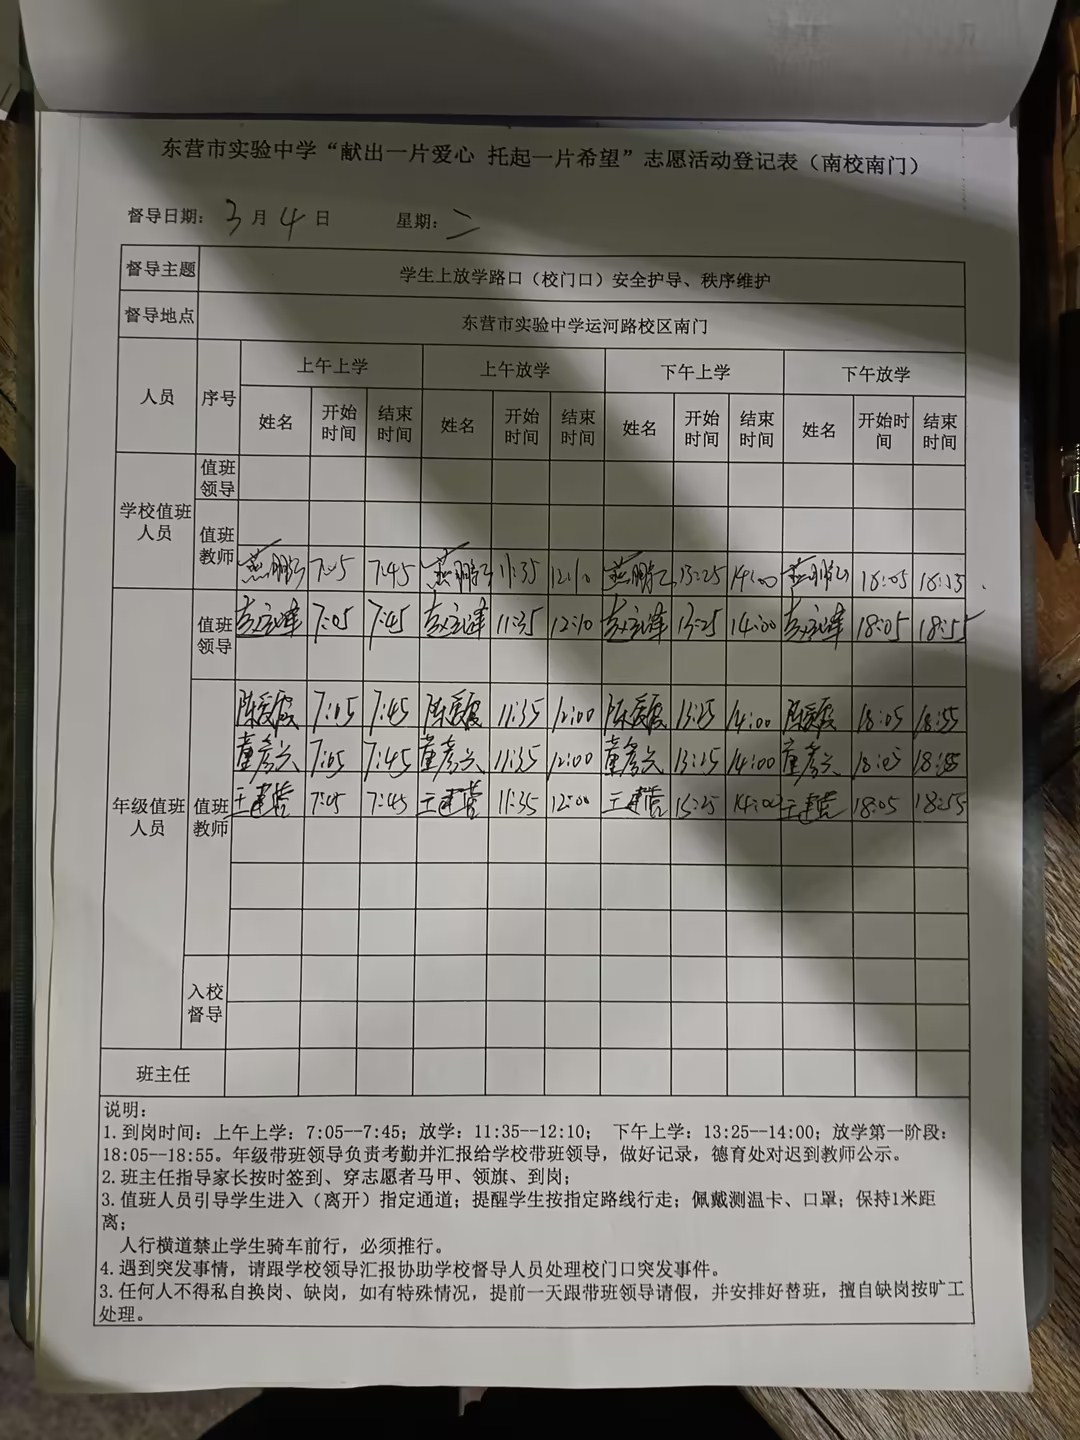 东营市实验中学“献出一片爱心 托起一片希望”志愿活动登记表（南校南门）
督导日期：3月4日 星期：二
督导主题 学生上放学路口（校门口）安全护导、秩序维护
督导地点 东营市实验中学运河路校区南门
人员 序号 上午上学 上午放学 下午上学 下午放学
姓名 开始时间 结束时间 姓名 开始时间 结束时间 姓名 开始时间 结束时间 姓名 开始时间 结束时间
学校值班人员 值班领导
值班教师
燕鹏 7:05 7:45 燕鹏 11:35 12:10 燕鹏 13:25 14:00 燕鹏 18:05
年级值班人员 值班领导 7:05 7:45 11:35 12:10 13:25 14:00 18:05 18:55
值班教师 陈爱霞 7:05 7:45 陈爱霞 11:35 12:00 陈爱霞 13:25 14:00 陈爱霞 18:05 18:55
董彦兴 7:05 7:45 董彦兴 11:35 12:00 董彦兴 13:25 14:00 董彦兴 18:05 18:55
王建营 7:05 7:45 王建营 11:35 12:00 王建营 13:25 14:00 王建营 18:05 18:55
入校督导
班主任
说明：
1.到岗时间：上午上学：7:05--7:45；放学：11:35--12:10； 下午上学：13:25--14:00；放学第一阶段：
18:05--18:55。年级带班领导负责考勤并汇报给学校带班领导，做好记录，德育处对迟到教师公示。
2.班主任指导家长按时签到、穿志愿者马甲、领旗、到岗；
3.值班人员引导学生进入（离开）指定通道；提醒学生按指定路线行走；佩戴测温卡、口罩；保持1米距
离；
人行横道禁止学生骑车前行，必须推行。
4.遇到突发事情，请跟学校领导汇报协助学校督导人员处理校门口突发事件。
3.任何人不得私自换岗、缺岗，如有特殊情况，提前一天跟带班领导请假，并安排好替班，擅自缺岗按旷工
处理。